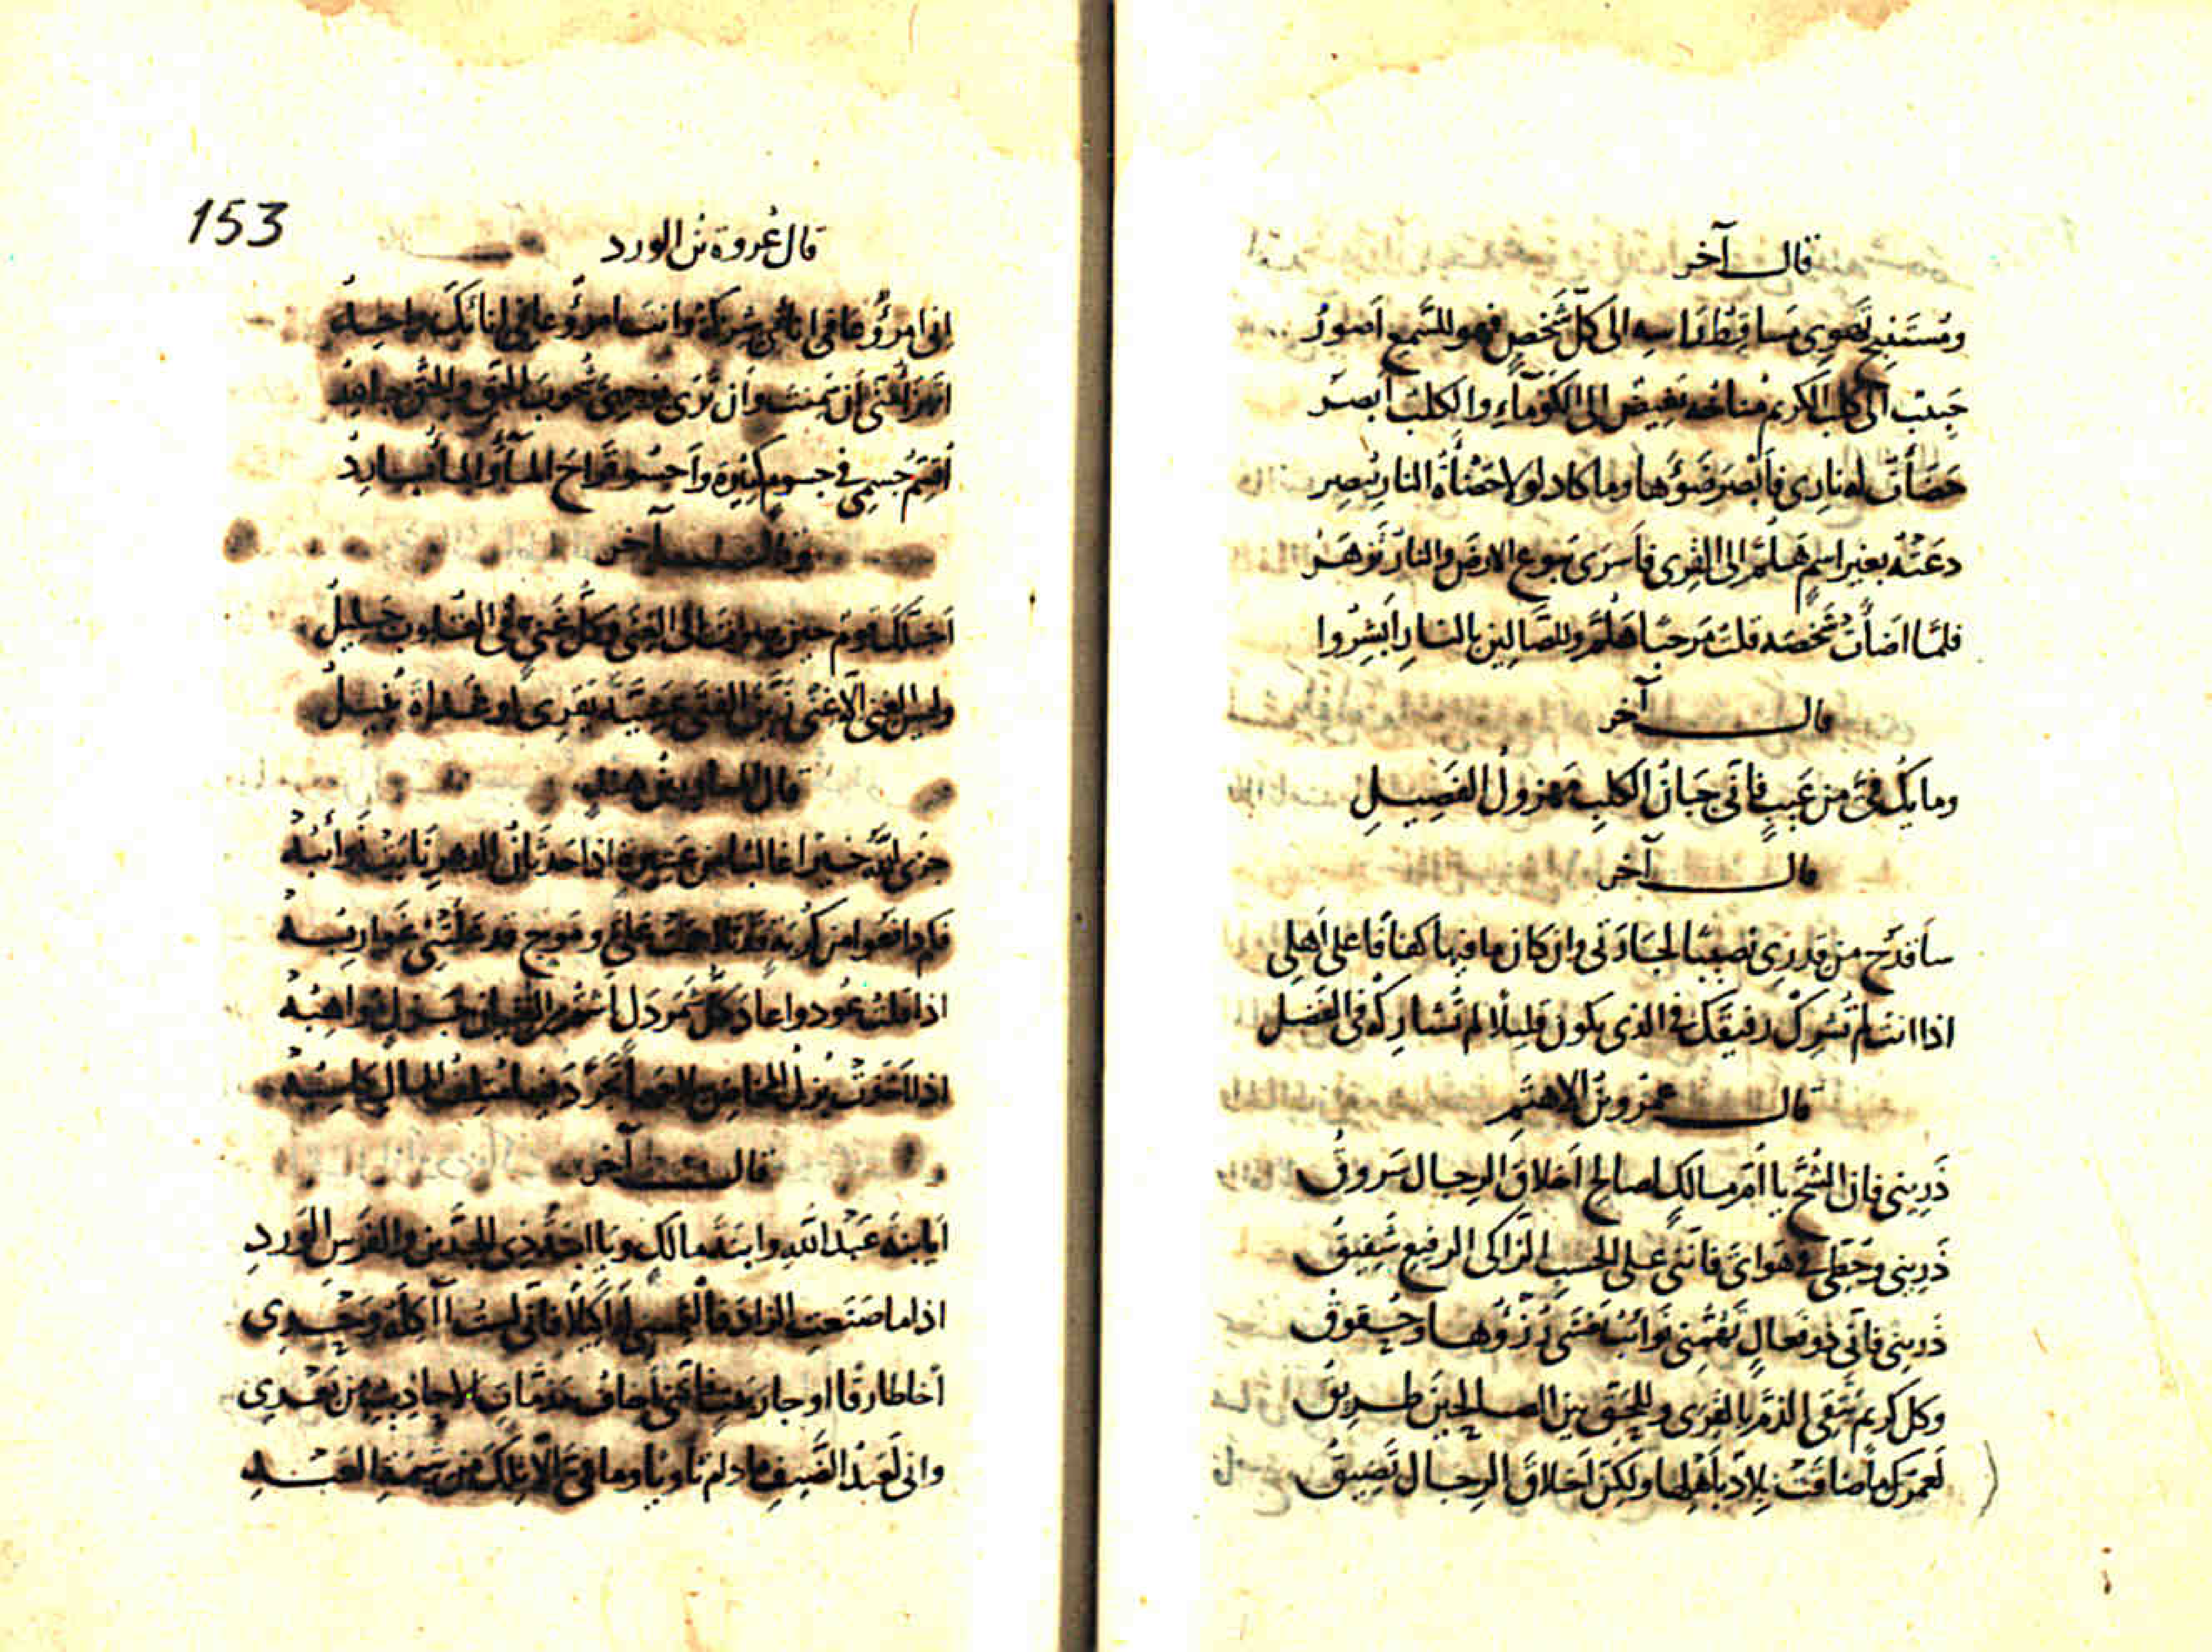 قال آخر
ومُستَنبِحٍ تَهوِى مَساقِطُ رَاسِه الى كلّ شَخصٍ فهو للسَّمع أصورُ
حَبيب الى كلب الكريم مُناخُه بَغيضٌ الى الكَوماءِ والكلبُ أبصَر
حَضَأتُ له نارِى فأَبْصَرَ ضَوءَها وما كاد لولا حَضْأةُ النارِ يُبصِر
دعَتْهُ بغير اسمٍ هَلُمَّ الى القِرى فأَسرَى يَبوع الارضَ والنارُ تَزهَرُ
فلمّا اضأت شَخصَه قلت مَرحبًا هَلُمَّ وللصَّالِين بالنارِ أبشِروا
قال آخر
وما يكُ فىَّ من عَيبٍ فانّى جَبانُ الكلبِ مَهزولُ الفَصِيلِ
قال آخر
سأقدَح من قِدرِى نَصيبًا لجارَتى وان كان ما فيها كفافًا على أهلِى
اذا انت لم تُشرِكْ رفيقَك فى الذى يكون قليلًا لم تُشارِكْه فى الفَضل
قال عمرو بن الاهتَم
ذَرِينى فان الشُّحَّ يا اُمَّ مالكٍ لصالح أخلاق الرجال سَروقُ
ذَرِينى وحُطّى فى هَواىَ فانّنى على الحسب الزاكى الرفيع شَفيقُ
ذَرينى فانّى ذو فَعالٍ تُهِمُّنى نَوائبُ يَغشَى رُزؤُها وحُقوقُ
وكل كريم يَتَّقى الذمّ بالقِرَى وللحَقّ بين الصالحين طريق
لَعمرُك ما ضاقَتْ بِلادٌ بأهلِها ولكنّ أخلاقَ الرجال تَضيقُ
153
قال عُروة بن الورد
انى امرؤٌ عافى انائى شركة وانت امرؤٌ عافى انائك واحدُ
اتهزأ منّى أن سمنت وأن تَرى بوجهى شُحوبَ الحقّ والحقُّ جاهدُ
أُقَسِّمُ جِسمِى فى جسومٍ كثيرة وأحسُو قَراحَ الماء والماءُ باردُ
وقال آخر
أجَلَّكَ قومٌ حين صرت الى الغِنى وكلّ غَنىٍّ فى القلوب جَليلُ
وليس الغِنى الّا غِنًى زَيَّن الفتى عَشِيَّةَ يَقرِى او غَداةَ يُنيلُ
قال المساور بن هند
جزى اللهُ خيرا غالبًا من عَشيرةٍ اذا حَدَثانُ الدهرِ نابَتْ نَوائبُهْ
فكم دافَعوا من كُربةٍ قد تلاحَمَتْ علىَّ ومَوجٍ قد عَلَتْنى غَوارِبُهْ
اذا قلتُ عُودوا عاد كلّ شَمَردَلٍ أشمَّ من الفتيان جَزلٍ مَواهِبُهْ
اذا أخذت بُزلُ المخاض سلاحها تجرَّد فيها مُتلفُ المال كاسبُه
قال آخر
أيا ابنةَ عَبدِ اللهِ وابنةَ مالك ويا ابنةَ ذى البُردَين والفَرَسِ الوَردِ
اذا ما صَنَعتِ الزادَ فالتمسى له أكيلا فانّى لستُ آكِلَه وَحدِى
أخا طارقًا او جار بيت فانّنى أخاف مذمّات الاحاديث من بَعدِى
وانى لعَبدُ الضَّيفِ ما دام ثاويًا وما فىَّ الّا تلك من شيمة العَبد